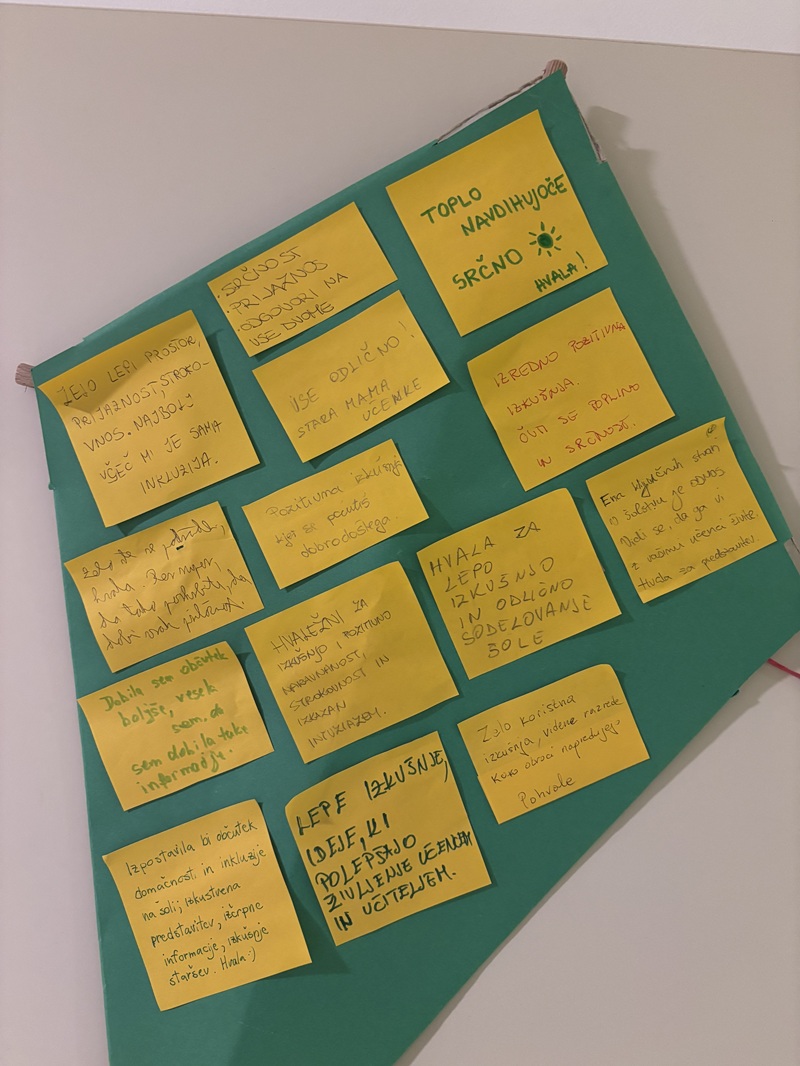 TOPLO
NAVDIHUJOČE
SRČNO
HVALA!
· SRČNOST
· PRIJAZNOS
· ODGOVORI NA
VSE DVOME
ŽELO LEPI PROSTOR,
PRIJAZNOST, STROKO-
VNOS. NAJBOLJ
VŠEČ MI JE SAMA
INKLUZIJA.
VSE ODLIČNO!
STARA MAMA
UČENKE
IZREDNO POZITIVNA
IZKUŠNJA.
ČUTI SE TOPLINO
IN SRČNOST.
Pozitivna izkušnja
kjer se počutiš
dobrodošlega.
Ena ključnih stvari
v šolstvu je ODNOS
Vidi se, da ga vi
z vašimi učenci živite.
Hvala za predstavitev.
hvala.
da tako
HVALA ZA
LEPO
IZKUŠNJO
IN ODLIČNO
SODELOVANJE
ŠOLE
HVALEŽNI ZA
IZKUŠNJO I POZITIVNO
NARAVNANOST,
STROKOVNOST IN
IZKAZAN
INTUZIAZEM.
Dobila sem občutek
boljše, vesela
sem, da
sem dobila take
informacije.
Zelo koristna
izkušnja, videne razrede
kako otroci napredujejo
Pohvale
LEPE IZKUŠNJE,
IDEJE, KI
POLEPŠAJO
ŽIVLJENJE UČENCEM
IN UČITELJEM.
Izpostavila bi občutek
domačnosti in inkluzije
na šoli; izkustvena
predstavitev, izčrpne
informacije, izkušnje
staršev. Hvala :)